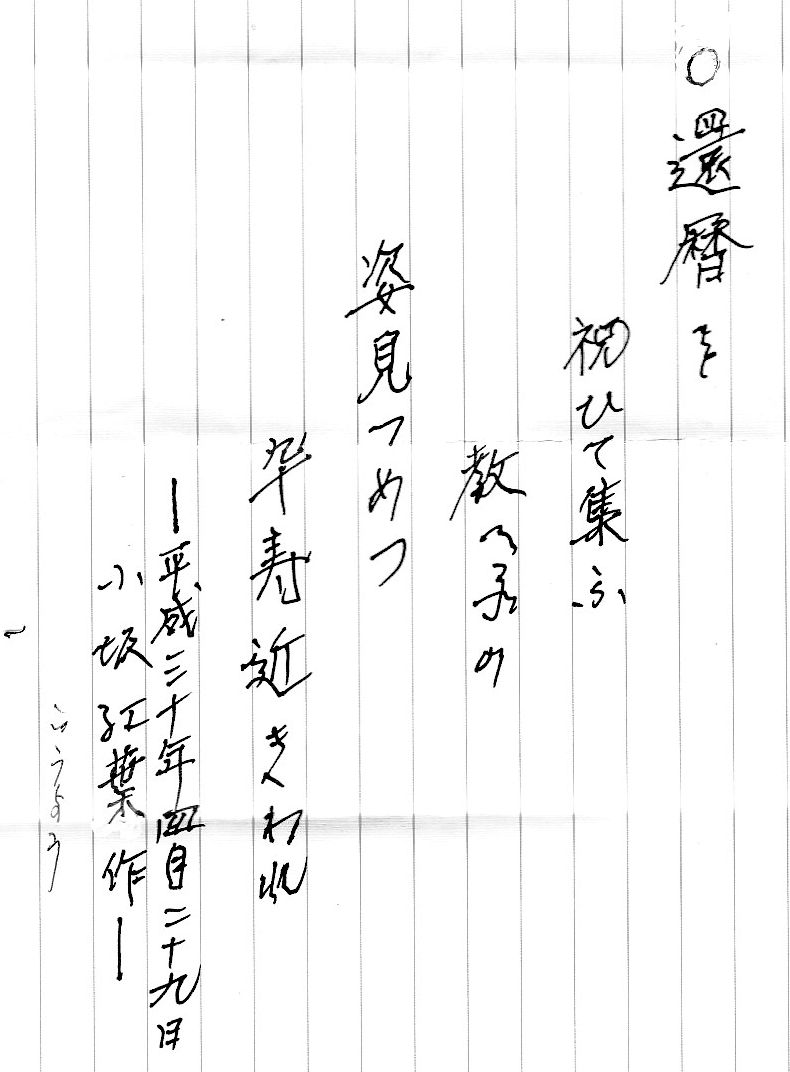 ○還暦を
祝ひて集ふ
教へ子の
姿見つめつ
卒寿近きわれ
ー平成三十年四月二十九日
小坂紅葉作ー
こうよう